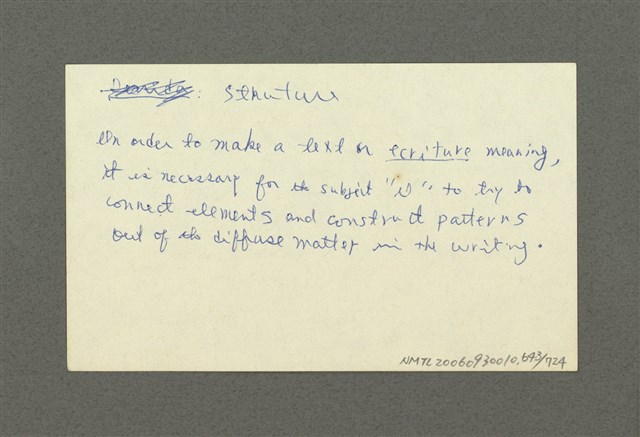 : structure
In order to make a text or ecriture meaning,
it is necessary for the subject "I" to try to
connect elements and construct patterns
out of the diffuse matter in the writing.
NMTL20060930010.643/724